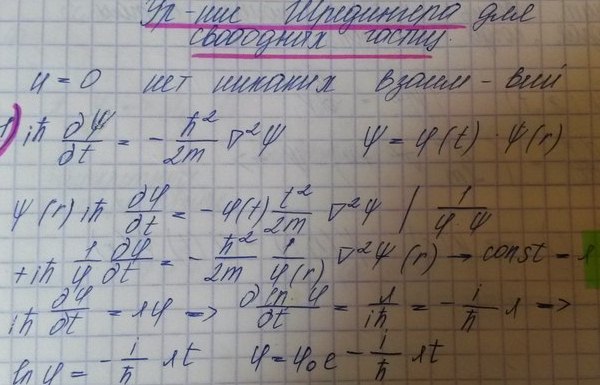 Ур-ние Шредингера для
свободных частиц.
U = 0 нет никаких взаим-вий
1) iħ ∂Ψ/∂t = - ħ²/2m ∇²Ψ Ψ = φ(t) · Ψ(r)
Ψ(r) iħ ∂φ/∂t = - φ(t) t²/2m ∇²Ψ | 1/φ·Ψ
+iħ 1/φ ∂φ/∂t = - ħ²/2m 1/φ(r) ∇²Ψ(r) → const = λ
iħ ∂φ/∂t = λφ => ∂ln φ/∂t = λ/iħ = - i/ħ λ =>
ln φ = - i/ħ λt φ = φ₀ e - i/ħ λt